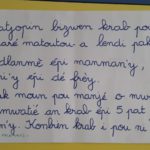 atjopin bizwen krab pou
paré matoutou a lendi pak
dlanmè épi manman'y,
ri'y épi dé frèy.
ak moun pou manjé o mwen
mwatié an krab épi 5 pat
an'y. Konbren krab i pou ni